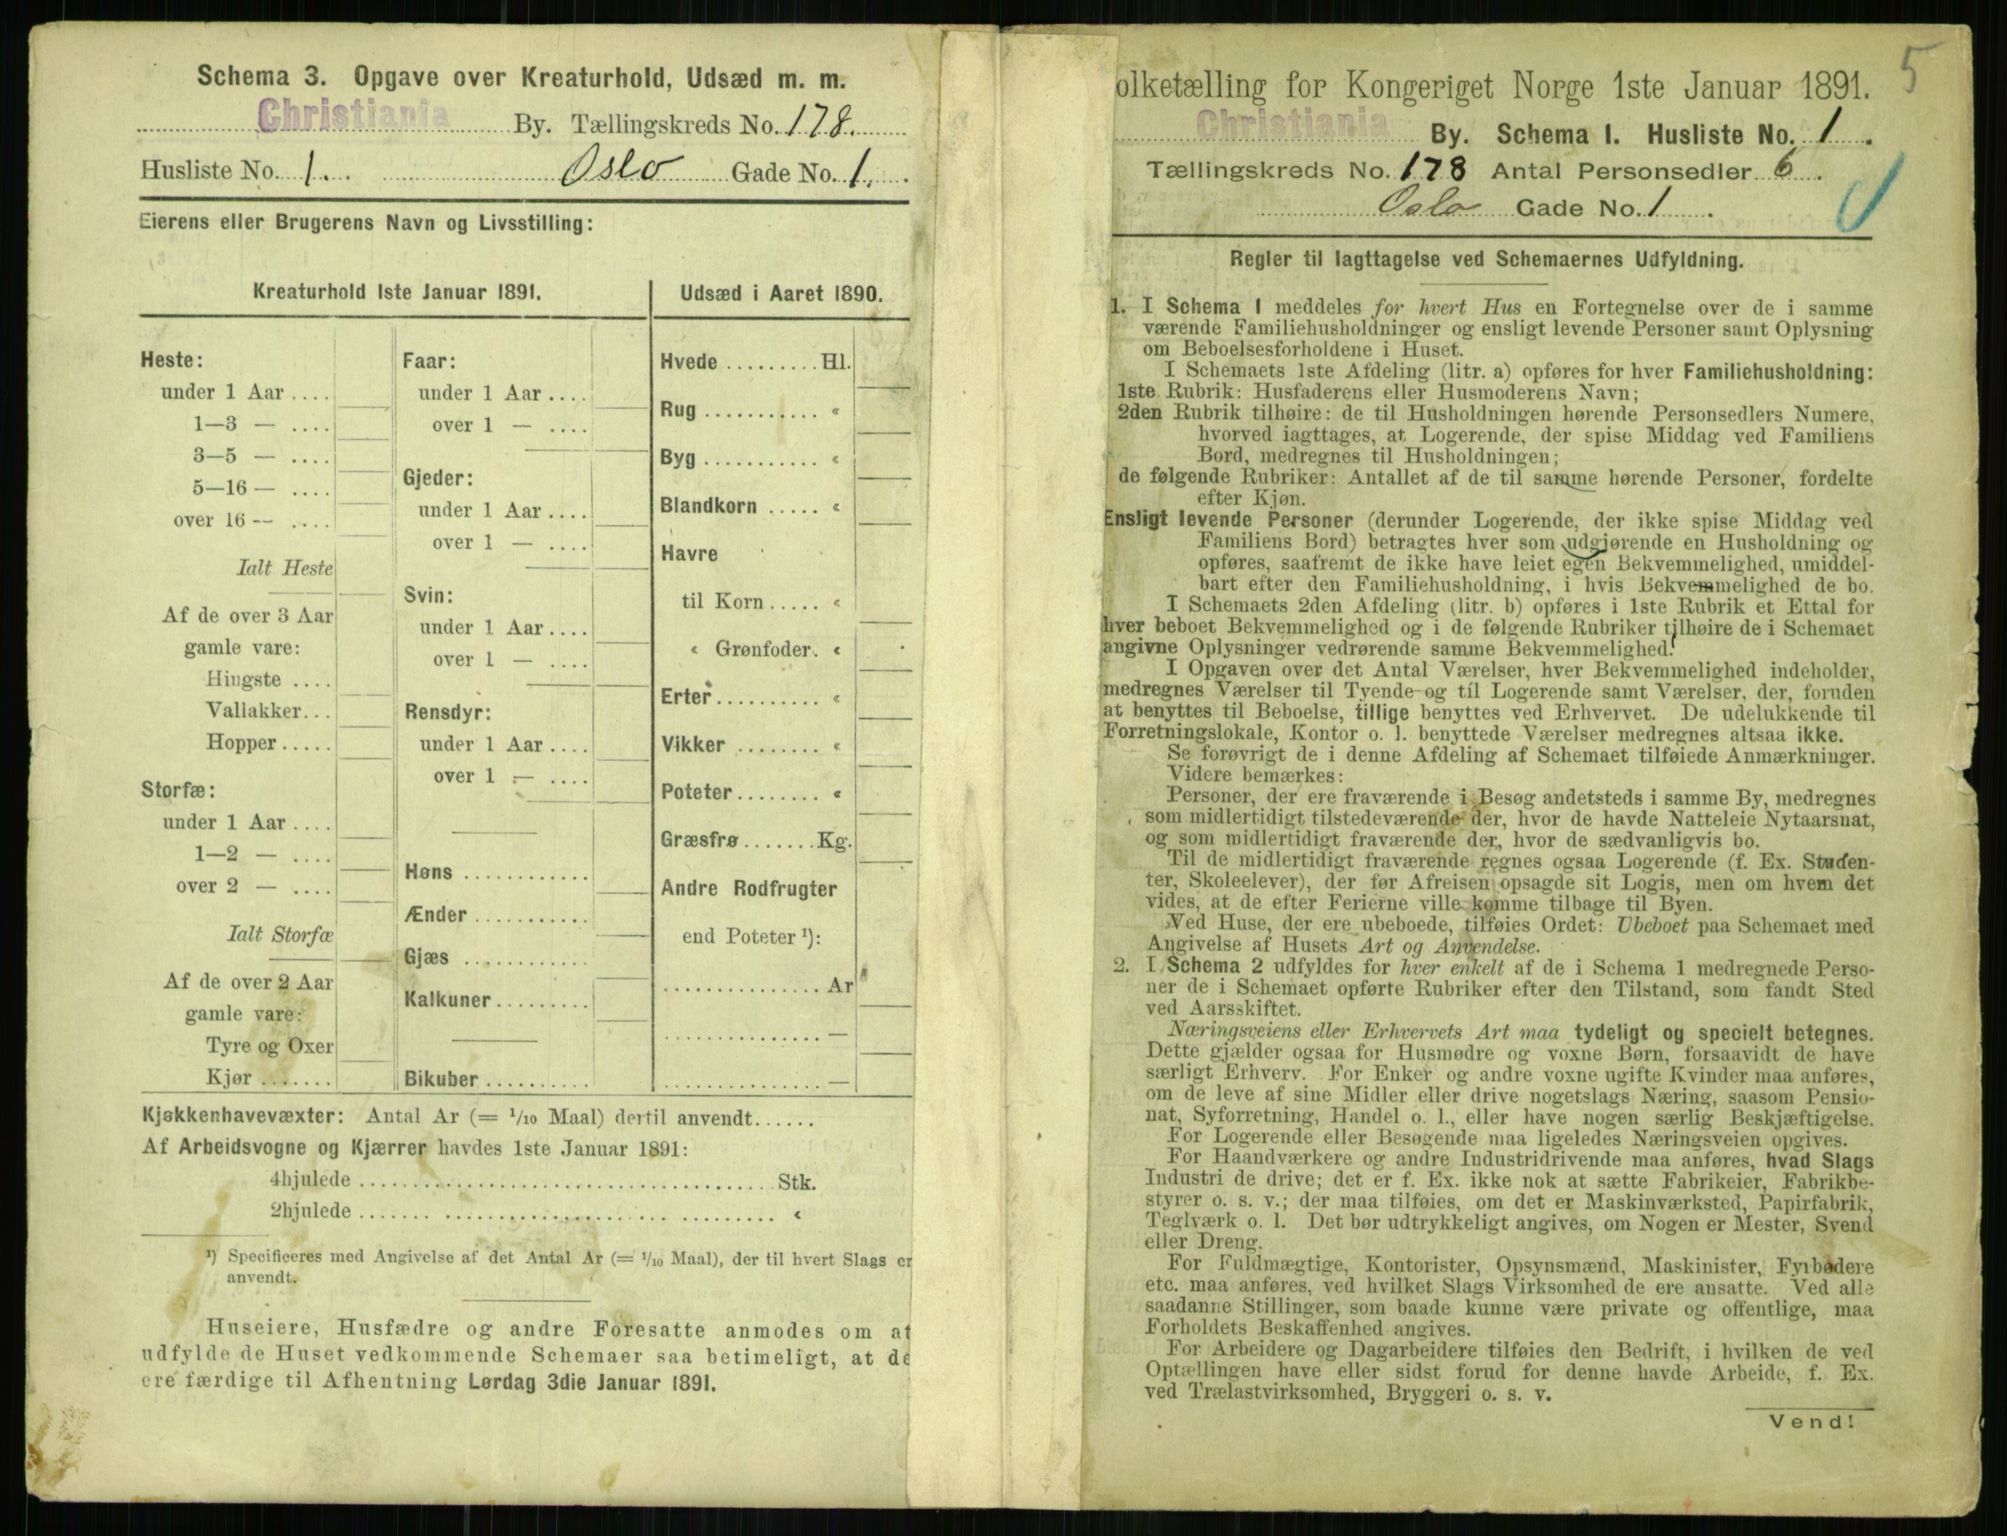 Schema 3. Opgave over Kreaturhold, Udsæd m. m.
Christiania By. Tællingskreds No. 178.
Husliste No. 1. Oslo Gade No. 1.
Eierens eller Brugerens Navn og Livsstilling:
Kreaturhold 1ste Januar 1891.
Heste:
under 1 Aar ....
1—3 — ....
3—5 — ....
5—16 — ....
over 16 — ....
Ialt Heste
Af de over 3 Aar
gamle vare:
Hingste ....
Vallakker...
Hopper.....
Storfæ:
under 1 Aar ....
1—2 — ....
over 2 — ....
Ialt Storfæ
Af de over 2 Aar
gamle vare:
Tyre og Oxer
Kjør .......
Faar:
under 1 Aar ....
over 1 — ....
Gjeder:
under 1 Aar ....
over 1 — ....
Svin:
under 1 Aar ....
over 1 — ....
Rensdyr:
under 1 Aar ....
over 1 — ....
Høns ............
Ænder ...........
Gjæs ............
Kalkuner.........
Bikuber ..........
Udsæd i Aaret 1890.
Hvede ......... Hl.
Rug ........... «
Byg ........... «
Blandkorn ..... «
Havre
til Korn ..... «
« Grønfoder. «
Erter.......... «
Vikker ........ «
Poteter........ «
Græsfrø....... Kg.
Andre Rodfrugter
end Poteter ¹):
............... Ar
............... —
............... —
Kjøkkenhavevæxter: Antal Ar (= 1/10 Maal) dertil anvendt......
Af Arbeidsvogne og Kjærrer havdes 1ste Januar 1891:
4hjulede ........................................ Stk.
2hjulede ........................................ «
¹) Specificeres med Angivelse af det Antal Ar (= 1/10 Maal), der til hvert Slags er
anvendt.
Huseiere, Husfædre og andre Foresatte anmodes om at
udfylde de Huset vedkommende Schemaer saa betimeligt, at de
ere færdige til Afhentning Lørdag 3die Januar 1891.
5
olketælling for Kongeriget Norge 1ste Januar 1891.
Christiania By. Schema 1. Husliste No. 1.
Tællingskreds No. 178 Antal Personsedler 6.
Oslo Gade No. 1.
Regler til Iagttagelse ved Schemaernes Udfyldning.
1. I Schema 1 meddeles for hvert Hus en Fortegnelse over de i samme
værende Familiehusholdninger og ensligt levende Personer samt Oplysning
om Beboelsesforholdene i Huset.
I Schemaets 1ste Afdeling (litr. a) opføres for hver Familiehusholdning:
1ste Rubrik: Husfaderens eller Husmoderens Navn;
2den Rubrik tilhøire: de til Husholdningen hørende Personsedlers Numere,
hvorved iagttages, at Logerende, der spise Middag ved Familiens
Bord, medregnes til Husholdningen;
de følgende Rubriker: Antallet af de til samme hørende Personer, fordelte
efter Kjøn.
Ensligt levende Personer (derunder Logerende, der ikke spise Middag ved
Familiens Bord) betragtes hver som udgjørende en Husholdning og
opføres, saafremt de ikke have leiet egen Bekvemmelighed, umiddel-
bart efter den Familiehusholdning, i hvis Bekvemmelighed de bo.
I Schemaets 2den Afdeling (litr. b) opføres i 1ste Rubrik et Ettal for
hver beboet Bekvemmelighed og i de følgende Rubriker tilhøire de i Schemaet
angivne Oplysninger vedrørende samme Bekvemmelighed.
I Opgaven over det Antal Værelser, hver Bekvemmelighed indeholder,
medregnes Værelser til Tyende og til Logerende samt Værelser, der, foruden
at benyttes til Beboelse, tillige benyttes ved Erhvervet. De udelukkende til
Forretningslokale, Kontor o. l. benyttede Værelser medregnes altsaa ikke.
Se forøvrigt de i denne Afdeling af Schemaet tilføiede Anmærkninger.
Videre bemærkes:
Personer, der ere fraværende i Besøg andetsteds i samme By, medregnes
som midlertidigt tilstedeværende der, hvor de havde Natteleie Nytaarsnat,
og som midlertidigt fraværende der, hvor de sædvanligvis bo.
Til de midlertidigt fraværende regnes ogsaa Logerende (f. Ex. Studen-
ter, Skoleelever), der før Afreisen opsagde sit Logis, men om hvem det
vides, at de efter Ferierne ville komme tilbage til Byen.
Ved Huse, der ere ubeboede, tilføies Ordet: Ubeboet paa Schemaet med
Angivelse af Husets Art og Anvendelse.
2. I Schema 2 udfyldes for hver enkelt af de i Schema 1 medregnede Perso-
ner de i Schemaet opførte Rubriker efter den Tilstand, som fandt Sted
ved Aarsskiftet.
Næringsveiens eller Erhvervets Art maa tydeligt og specielt betegnes.
Dette gjælder ogsaa for Husmødre og voxne Børn, forsaavidt de have
særligt Erhverv. For Enker og andre voxne ugifte Kvinder maa anføres,
om de leve af sine Midler eller drive nogetslags Næring, saasom Pensio-
nat, Syforretning, Handel o. l., eller have nogen særlig Beskjæftigelse.
For Logerende eller Besøgende maa ligeledes Næringsveien opgives.
For Haandværkere og andre Industridrivende maa anføres, hvad Slags
Industri de drive; det er f. Ex. ikke nok at sætte Fabrikeier, Fabrikbe-
styrer o. s. v.; der maa tilføies, om det er Maskinværksted, Papirfabrik,
Teglværk o. l. Det bør udtrykkeligt angives, om Nogen er Mester, Svend
eller Dreng.
For Fuldmægtige, Kontorister, Opsynsmænd, Maskinister, Fyrbødere
etc. maa anføres, ved hvilket Slags Virksomhed de ere ansatte. Ved alle
saadanne Stillinger, som baade kunne være private og offentlige, maa
Forholdets Beskaffenhed angives.
For Arbeidere og Dagarbeidere tilføies den Bedrift, i hvilken de ved
Optællingen have eller sidst forud for denne havde Arbeide, f. Ex.
ved Trælastvirksomhed, Bryggeri o. s. v.
Vend!